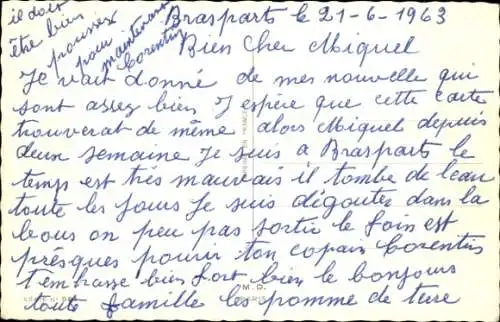 Brasparts le 21-6-1963
Bien cher Miguel
Je vait donné de mes nouvelle qui
sont assez bien J espère que cette carte
trouverat de même alors Miguel depuis
deux semaine Je suis a Brasparts le
temps est très mauvais il tombe de l'eau
toute les Jours Je suis dégouter dans la
boue on peu pas sortir le foin est
présques pourir ton copain Corentin
t'embrasse bien fort bien le bonjours
toute famille les pomme de tere
il doit
être bien
pousser
pour
maintenant
Corentin
M. D.